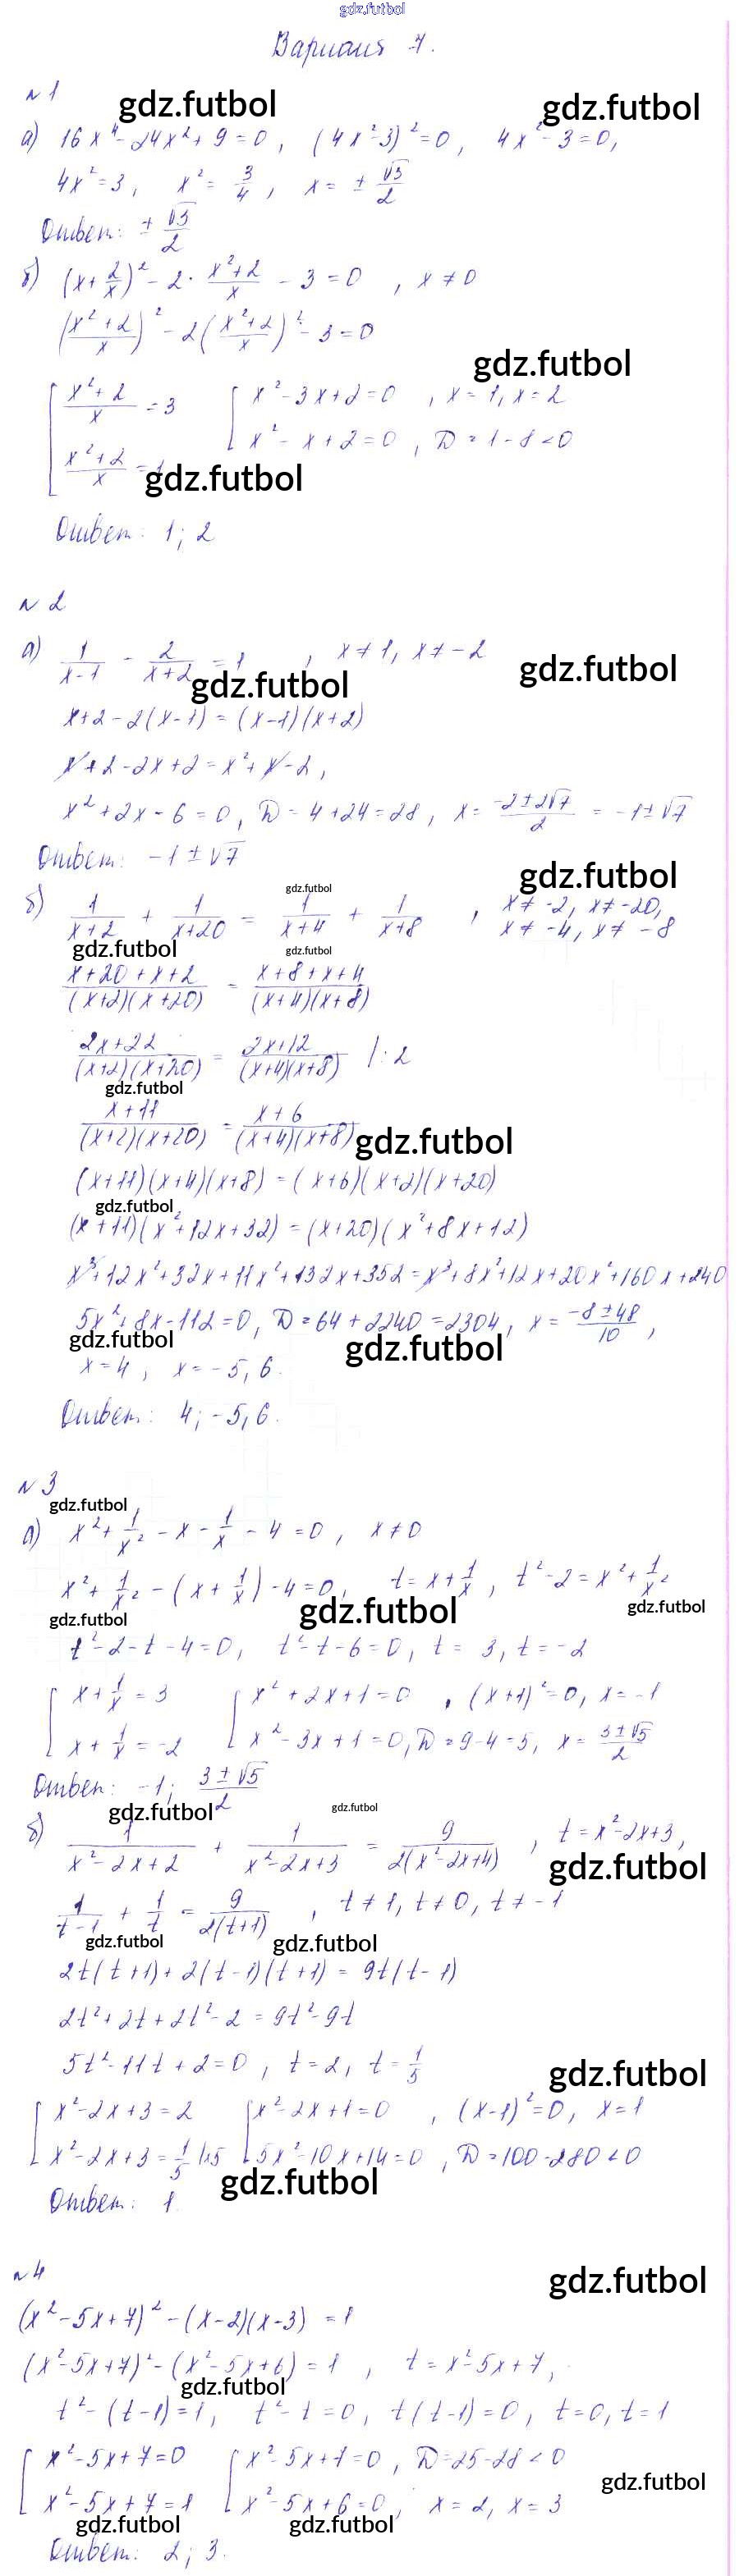 gdz.futbol
Вариант 7.
№1
gdz.futbol gdz.futbol
а) 16x⁴ - 24x² + 9 = 0, (4x² - 3)² = 0, 4x² - 3 = 0,
4x² = 3, x² = 3/4, x = ± √3/2
Ответ: ± √3/2
б) (x + 2/x)² - 2 · (x² + 2)/x - 3 = 0, x ≠ 0
((x² + 2)/x)² - 2((x² + 2)/x)² - 3 = 0
gdz.futbol
[ (x² + 2)/x = 3 [ x² - 3x + 2 = 0, x = 1, x = 2
(x² + 2)/x = -1 x² - x + 2 = 0, D = 1 - 8 < 0
gdz.futbol
Ответ: 1; 2
№2
а) 1/(x - 1) - 2/(x + 2) = 1, x ≠ 1, x ≠ -2
gdz.futbol gdz.futbol
x + 2 - 2(x - 1) = (x - 1)(x + 2)
x + 2 - 2x + 2 = x² + x - 2,
x² + 2x - 6 = 0, D = 4 + 24 = 28, x = (-2 ± 2√7)/2 = -1 ± √7
Ответ: -1 ± √7
gdz.futbol
gdz.futbol
б) 1/(x + 2) + 1/(x + 20) = 1/(x + 4) + 1/(x + 8), x ≠ -2, x ≠ -20,
x ≠ -4, x ≠ -8
gdz.futbol gdz.futbol
(x + 20 + x + 2)/((x + 2)(x + 20)) = (x + 8 + x + 4)/((x + 4)(x + 8))
(2x + 22)/((x + 2)(x + 20)) = (2x + 12)/((x + 4)(x + 8)) | : 2
gdz.futbol
(x + 11)/((x + 2)(x + 20)) = (x + 6)/((x + 4)(x + 8))
gdz.futbol
(x + 11)(x + 4)(x + 8) = (x + 6)(x + 2)(x + 20)
gdz.futbol
(x + 11)(x² + 12x + 32) = (x + 20)(x² + 8x + 12)
x³ + 12x² + 32x + 11x² + 132x + 352 = x³ + 8x² + 12x + 20x² + 160x + 240
5x² + 8x - 112 = 0, D = 64 + 2240 = 2304, x = (-8 ± 48)/10,
gdz.futbol gdz.futbol
x = 4, x = -5,6.
Ответ: 4; -5,6.
№3
gdz.futbol
а) x² + 1/x² - x - 1/x - 4 = 0, x ≠ 0
x² + 1/x² - (x + 1/x) - 4 = 0, t = x + 1/x, t² - 2 = x² + 1/x²
gdz.futbol gdz.futbol gdz.futbol
t² - 2 - t - 4 = 0, t² - t - 6 = 0, t = 3, t = -2
[ x + 1/x = 3 [ x² + 2x + 1 = 0, (x + 1)² = 0, x = -1
x + 1/x = -2 x² - 3x + 1 = 0, D = 9 - 4 = 5, x = (3 ± √5)/2
Ответ: -1; (3 ± √5)/2
gdz.futbol gdz.futbol
б) 1/(x² - 2x + 2) + 1/(x² - 2x + 3) = 9/(2(x² - 2x + 4)), t = x² - 2x + 3,
gdz.futbol
1/(t - 1) + 1/t = 9/(2(t + 1)), t ≠ 1, t ≠ 0, t ≠ -1
gdz.futbol gdz.futbol
2t(t + 1) + 2(t - 1)(t + 1) = 9t(t - 1)
2t² + 2t + 2t² - 2 = 9t² - 9t
5t² - 11t + 2 = 0, t = 2, t = 1/5
gdz.futbol
[ x² - 2x + 3 = 2 [ x² - 2x + 1 = 0, (x - 1)² = 0, x = 1
x² - 2x + 3 = 1/5 |·5 5x² - 10x + 14 = 0, D = 100 - 280 < 0
gdz.futbol
Ответ: 1.
№4
gdz.futbol
(x² - 5x + 7)² - (x - 2)(x - 3) = 1
(x² - 5x + 7)² - (x² - 5x + 6) = 1, t = x² - 5x + 7,
gdz.futbol
t² - (t - 1) = 1, t² - t = 0, t(t - 1) = 0, t = 0, t = 1
[ x² - 5x + 7 = 0 [ x² - 5x + 7 = 0, D = 25 - 28 < 0
gdz.futbol
x² - 5x + 7 = 1 x² - 5x + 6 = 0, x = 2, x = 3
gdz.futbol gdz.futbol
Ответ: 2; 3.